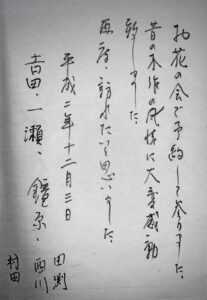 お花の会で予約して参りました。
昔の木作の風情に大変感動
致しました。
再度、訪れたいと思いました。
平成二年十二月三日
吉田・一瀬・鐘原・西川
田渕
村田